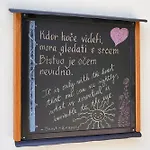 Kdor hoče videti,
mora gledati s srcem
Bistvo je očem
nevidno.
It is only with the heart
that one can see rightly,
what is essential is
invisible to the eye